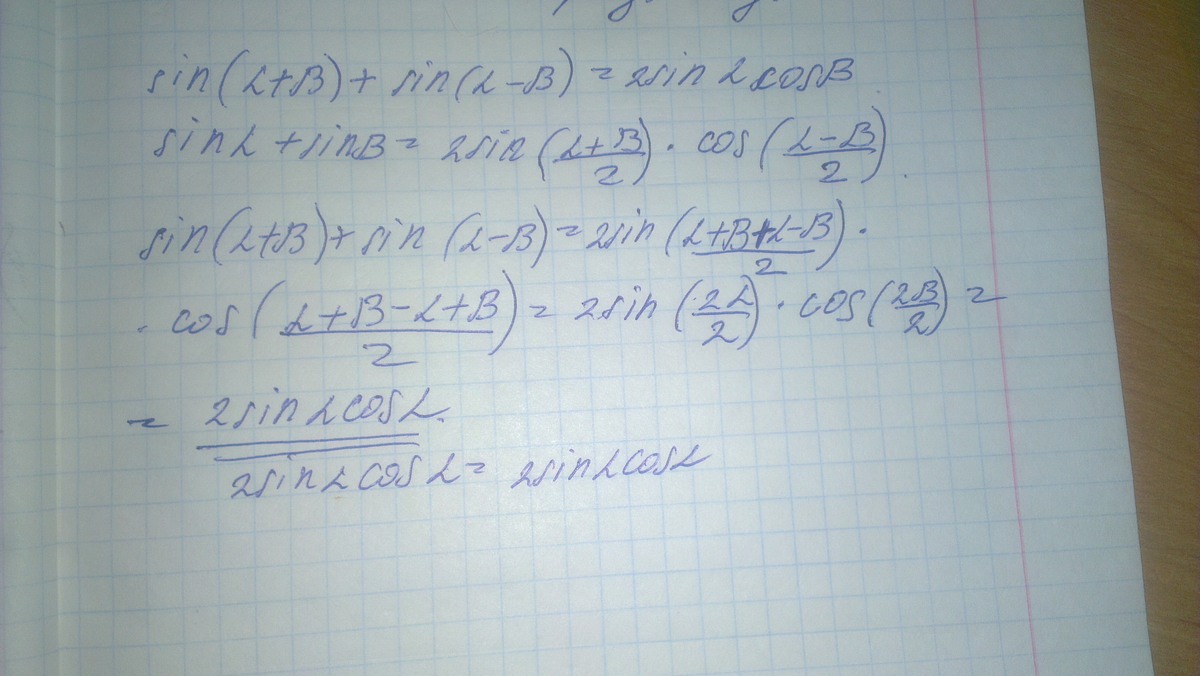 sin(α+β)+ sin(α-β) = 2sin α cosβ
sinα + sinβ = 2sin (α+β/2) · cos (α-β/2).
sin(α+β)+ sin (α-β) = 2sin (α+β+α-β/2) ·
· cos (α+β-α+β/2) = 2sin (2α/2) · cos (2β/2) =
= 2sin α cos α.
2sin α cos α = 2sin α cos α